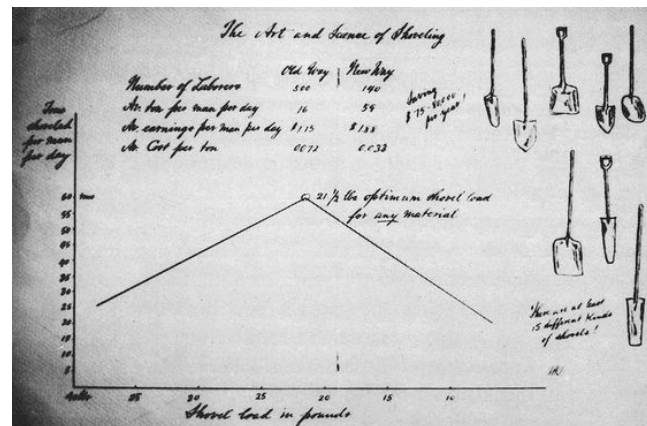 The Art and Science of Shoveling
Old Way New Way
Number of Laborers 500 140
Av. ton per man per day 16 59
Av. earnings per man per day $1.15 $1.88
Av. Cost per ton 0.072 0.033
Saving
$75-80,000
per year!
Tons
shoveled
per man
per day
60 tons
55
50
45
40
35
30
25
20
15
10
5
21 1/2 lbs optimum shovel load
for any material
There are at least
15 different kinds
of shovels!
35 30 25 20 15 10
Shovel load in pounds